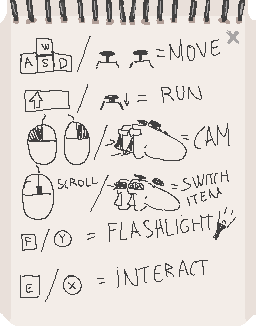 W
A S D / = MOVE
/ = RUN
/ = CAM
SCROLL / = SWITCH
ITEM
F / Y = FLASHLIGHT
E / X = INTERACT